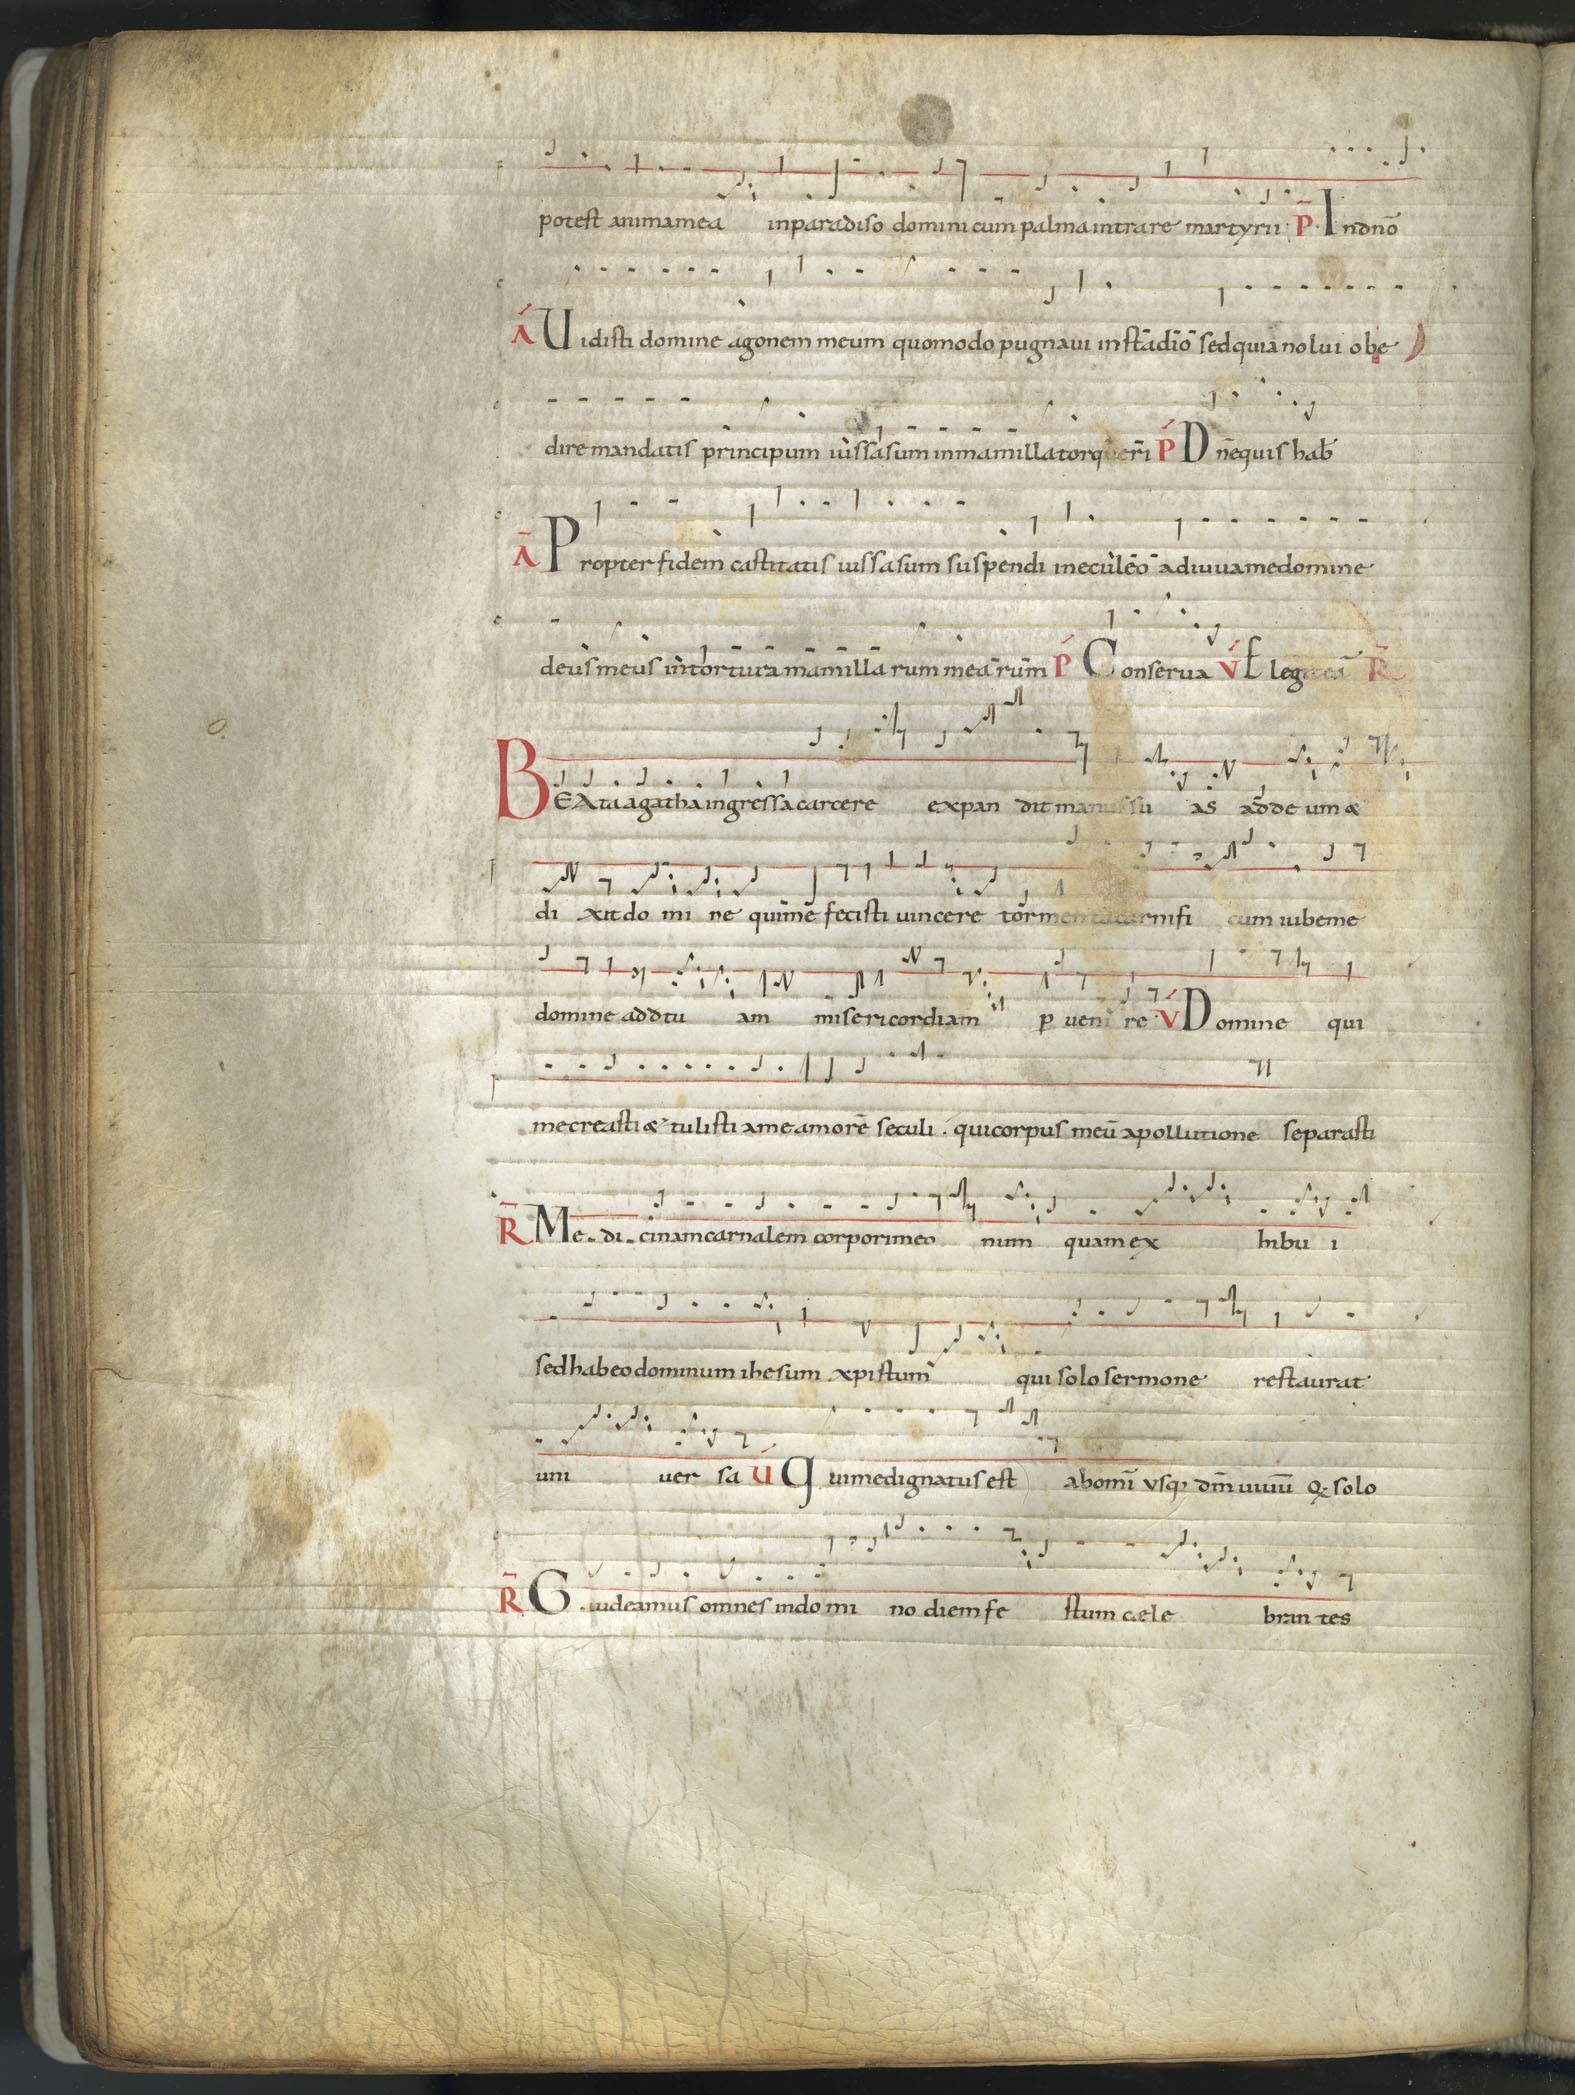 potest anima mea in paradiso domini cum palma intrare martyrii P̄ In dnō
Ā Uidisti domine agonem meum quomodo pugnaui in stadio sed quia nolui obe
dire mandatis principum iussa sum in mamilla torqueri P Dn̄e quis hab̄
Ā Propter fidem castitatis iussa sum suspendi in eculeo adiuua me domine
deus meus in tortura mamillarum mearum P Conserua V Elegit eā R̄
BEAta agatha ingressa carcere expandit manus suas ad deum &
dixit domine qui me fecisti uincere tormenta carnificum iube me
domine ad tuam misericordiam peruenire V Domine qui
me creasti & tulisti a me amorē seculi . qui corpus meū a pollutione separasti
R̄ Medicinam carnalem corpori meo num quam exhibui
sed habeo dominum ihesum xpistum qui solo sermone restaurat
uniuersa V Qui me dignatus est ab omī usq; dm̄ uiuū Q solo
R̄ Gaudeamus omnes in domino diem festum caelebrantes